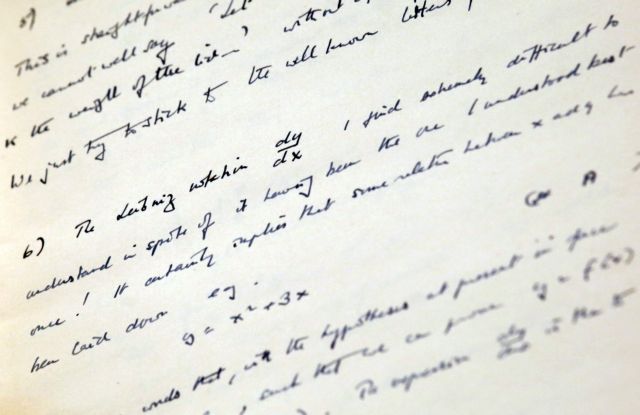 5)
This is straightforward
we cannot well say 'Let
is the weight of the lion' without
We just try to stick to the well known letters
6) The Leibniz notation dy/dx I find extremely difficult to
understand in spite of it having been the one I understood best
once! It certainly implies that some relation between x and y has
been laid down eg.
y = x² + 3x
that, with the hypotheses at present in force
such that we can prove y = f(x)
The expression dy/dx is the